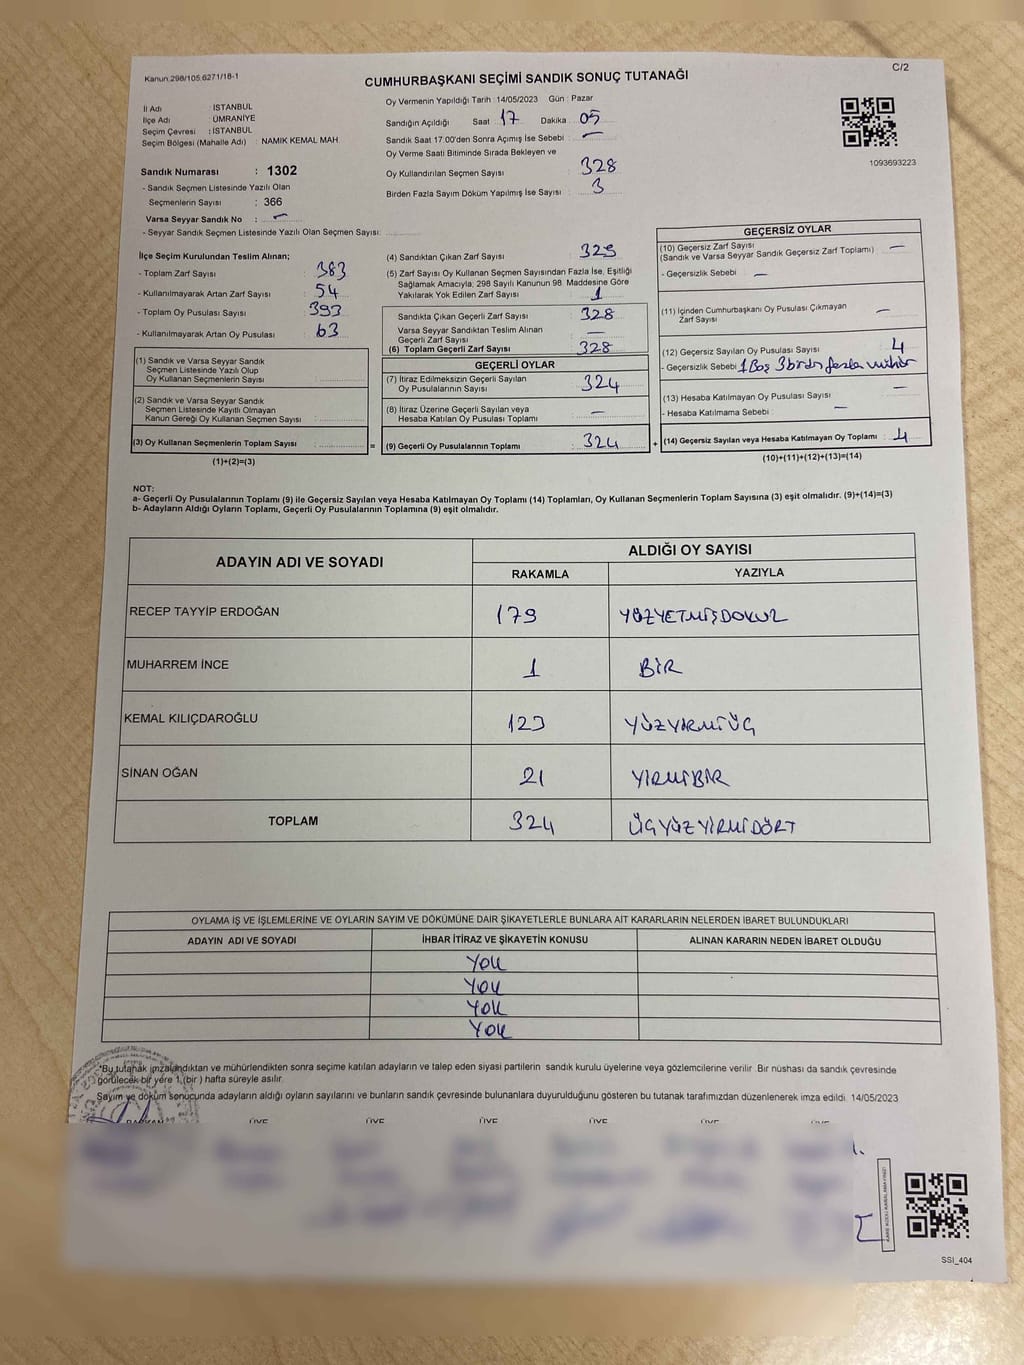 Kanun 298/105 6271/18-1
C/2
CUMHURBAŞKANI SEÇİMİ SANDIK SONUÇ TUTANAĞI
İl Adı : İSTANBUL
İlçe Adı : ÜMRANİYE
Seçim Çevresi : İSTANBUL
Seçim Bölgesi (Mahalle Adı) : NAMIK KEMAL MAH
Sandık Numarası : 1302
- Sandık Seçmen Listesinde Yazılı Olan
Seçmenlerin Sayısı : 366
Varsa Seyyar Sandık No : —
- Seyyar Sandık Seçmen Listesinde Yazılı Olan Seçmen Sayısı:
Oy Vermenin Yapıldığı Tarih : 14/05/2023 Gün : Pazar
Sandığın Açıldığı Saat : 17 Dakika : 05
Sandık Saat 17.00'den Sonra Açımış İse Sebebi : —
Oy Verme Saati Bitiminde Sırada Bekleyen ve
Oy Kullandırılan Seçmen Sayısı : 328
Birden Fazla Sayım Döküm Yapılmış İse Sayısı : 3
1093693223
İlçe Seçim Kurulundan Teslim Alınan;
- Toplam Zarf Sayısı : 383
- Kullanılmayarak Artan Zarf Sayısı : 54
- Toplam Oy Pusulası Sayısı : 393
- Kullanılmayarak Artan Oy Pusulası : 63
(1) Sandık ve Varsa Seyyar Sandık
Seçmen Listesinde Yazılı Olup
Oy Kullanan Seçmenlerin Sayısı :
(2) Sandık ve Varsa Seyyar Sandık
Seçmen Listesinde Kayıtlı Olmayan
Kanun Gereği Oy Kullanan Seçmen Sayısı :
(3) Oy Kullanan Seçmenlerin Toplam Sayısı : =
(1)+(2)=(3)
(4) Sandıktan Çıkan Zarf Sayısı : 329
(5) Zarf Sayısı Oy Kullanan Seçmen Sayısından Fazla İse, Eşitliği
Sağlamak Amacıyla; 298 Sayılı Kanunun 98. Maddesine Göre
Yakılarak Yok Edilen Zarf Sayısı : 1
Sandıkta Çıkan Geçerli Zarf Sayısı : 328
Varsa Seyyar Sandıktan Teslim Alınan
Geçerli Zarf Sayısı : —
(6) Toplam Geçerli Zarf Sayısı : 328
GEÇERLİ OYLAR
(7) İtiraz Edilmeksizin Geçerli Sayılan
Oy Pusulalarının Sayısı : 324
(8) İtiraz Üzerine Geçerli Sayılan veya
Hesaba Katılan Oy Pusulası Toplamı : —
(9) Geçerli Oy Pusulalarının Toplamı : 324 +
GEÇERSİZ OYLAR
(10) Geçersiz Zarf Sayısı
(Sandık ve Varsa Seyyar Sandık Geçersiz Zarf Toplamı) : —
- Geçersizlik Sebebi : —
(11) İçinden Cumhurbaşkanı Oy Pusulası Çıkmayan
Zarf Sayısı : —
(12) Geçersiz Sayılan Oy Pusulası Sayısı : 4
- Geçersizlik Sebebi : 1 Boş 3 birden fazla mühür
(13) Hesaba Katılmayan Oy Pusulası Sayısı : —
- Hesaba Katılmama Sebebi : —
(14) Geçersiz Sayılan veya Hesaba Katılmayan Oy Toplamı : 4
(10)+(11)+(12)+(13)=(14)
NOT:
a- Geçerli Oy Pusulalarının Toplamı (9) ile Geçersiz Sayılan veya Hesaba Katılmayan Oy Toplamı (14) Toplamları, Oy Kullanan Seçmenlerin Toplam Sayısına (3) eşit olmalıdır. (9)+(14)=(3)
b- Adayların Aldığı Oyların Toplamı, Geçerli Oy Pusulalarının Toplamına (9) eşit olmalıdır.
ADAYIN ADI VE SOYADI ALDIĞI OY SAYISI
RAKAMLA YAZIYLA
RECEP TAYYİP ERDOĞAN 179 YÜZYETMİŞDOKUZ
MUHARREM İNCE 1 BİR
KEMAL KILIÇDAROĞLU 123 YÜZYİRMİÜÇ
SİNAN OĞAN 21 YİRMİBİR
TOPLAM 324 ÜÇYÜZYİRMİDÖRT
OYLAMA İŞ VE İŞLEMLERİNE VE OYLARIN SAYIM VE DÖKÜMÜNE DAİR ŞİKAYETLERLE BUNLARA AİT KARARLARIN NELERDEN İBARET BULUNDUKLARI
ADAYIN ADI VE SOYADI İHBAR İTİRAZ VE ŞİKAYETİN KONUSU ALINAN KARARIN NEDEN İBARET OLDUĞU
YOK
YOK
YOK
YOK
*Bu tutanak imzalandıktan ve mühürlendikten sonra seçime katılan adayların ve talep eden siyasi partilerin sandık kurulu üyelerine veya gözlemcilerine verilir. Bir nüshası da sandık çevresinde
görülecek bir yere 1 (bir) hafta süreyle asılır.
Sayım ve döküm sonucunda adayların aldığı oyların sayılarını ve bunların sandık çevresinde bulunanlara duyurulduğunu gösteren bu tutanak tarafımızdan düzenlenerek imza edildi. 14/05/2023
BAŞKAN ÜYE ÜYE ÜYE ÜYE ÜYE ÜYE
SSI_404